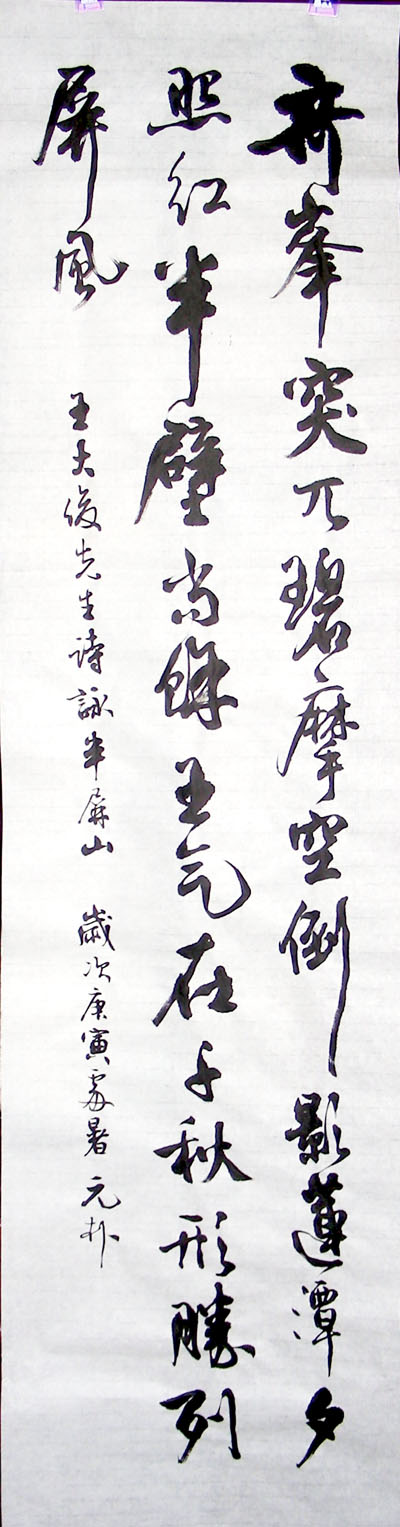 奇峯突兀碧摩空倒影蓮潭夕
照紅半壁尚餘王气在千秋形勝列
屏風
王大俊先生詩詠半屏山 歲次庚寅處暑 元朴